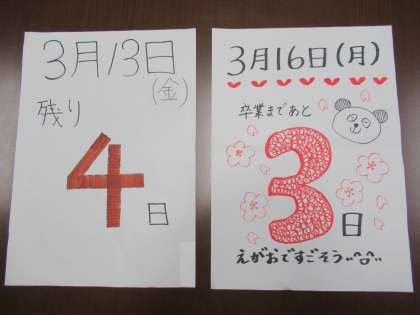 3月13日
(金)
残り
4
日
3月16日(月)
卒業まであと
3
日
えがおですごそう